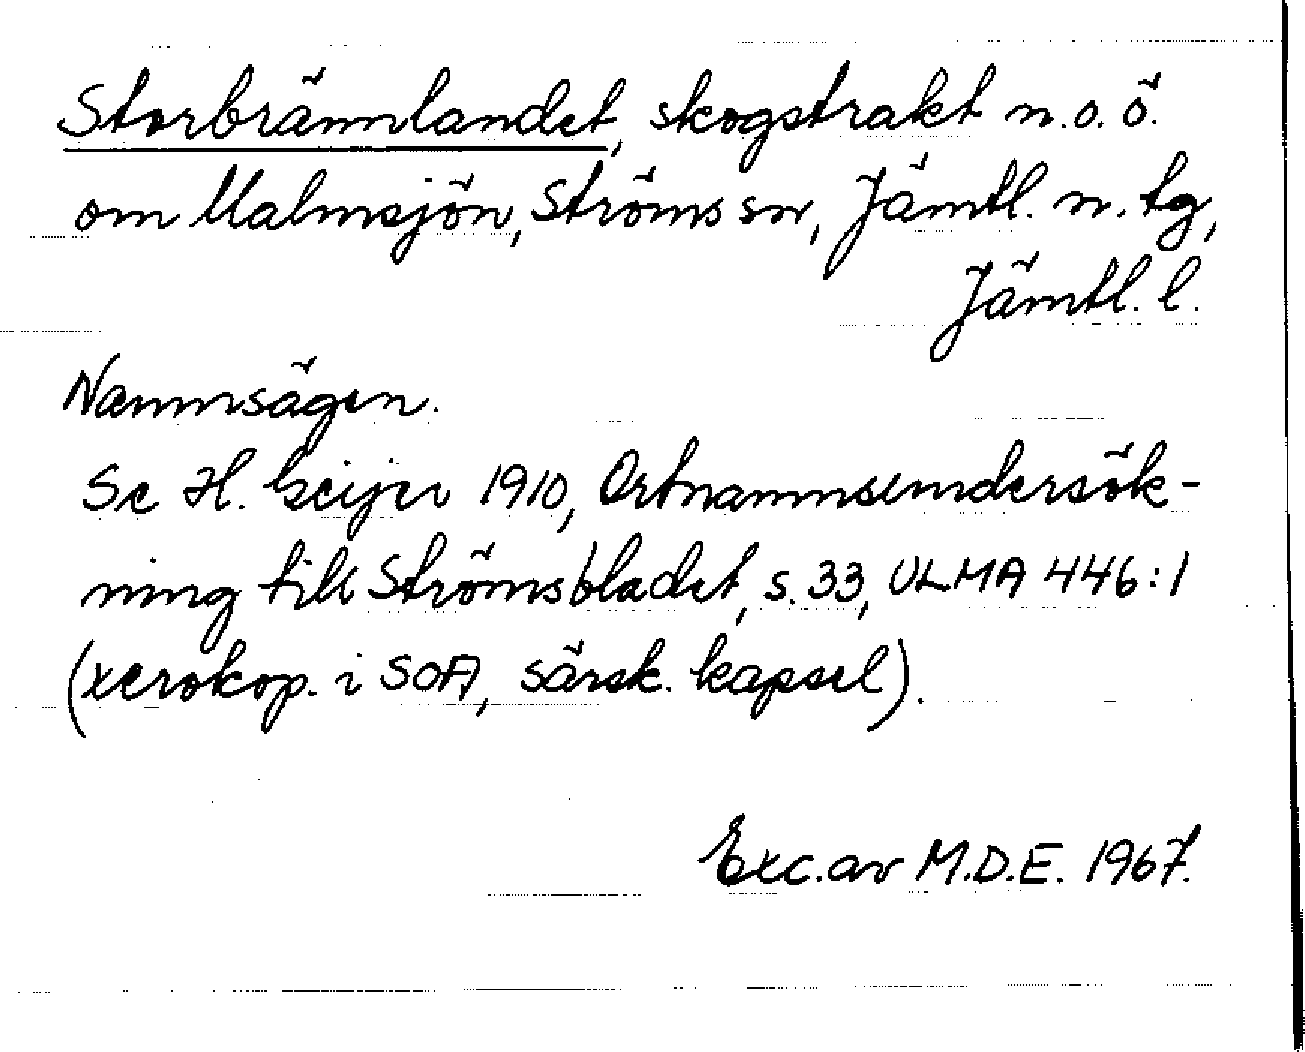 Storbrännlandet, skogstrakt n.o.ö.
om Malmsjön, Ströms sn, Jämtl. n. tg,
Jämtl. l.
Namnsägen.
Se H. Geijer 1910, Ortnamnsundersök-
ning till Strömsbladet, s. 33, ULMA 446:1
(xerokop. i SOA, särsk. kapsel).
Exc. av M.D.E. 1967.